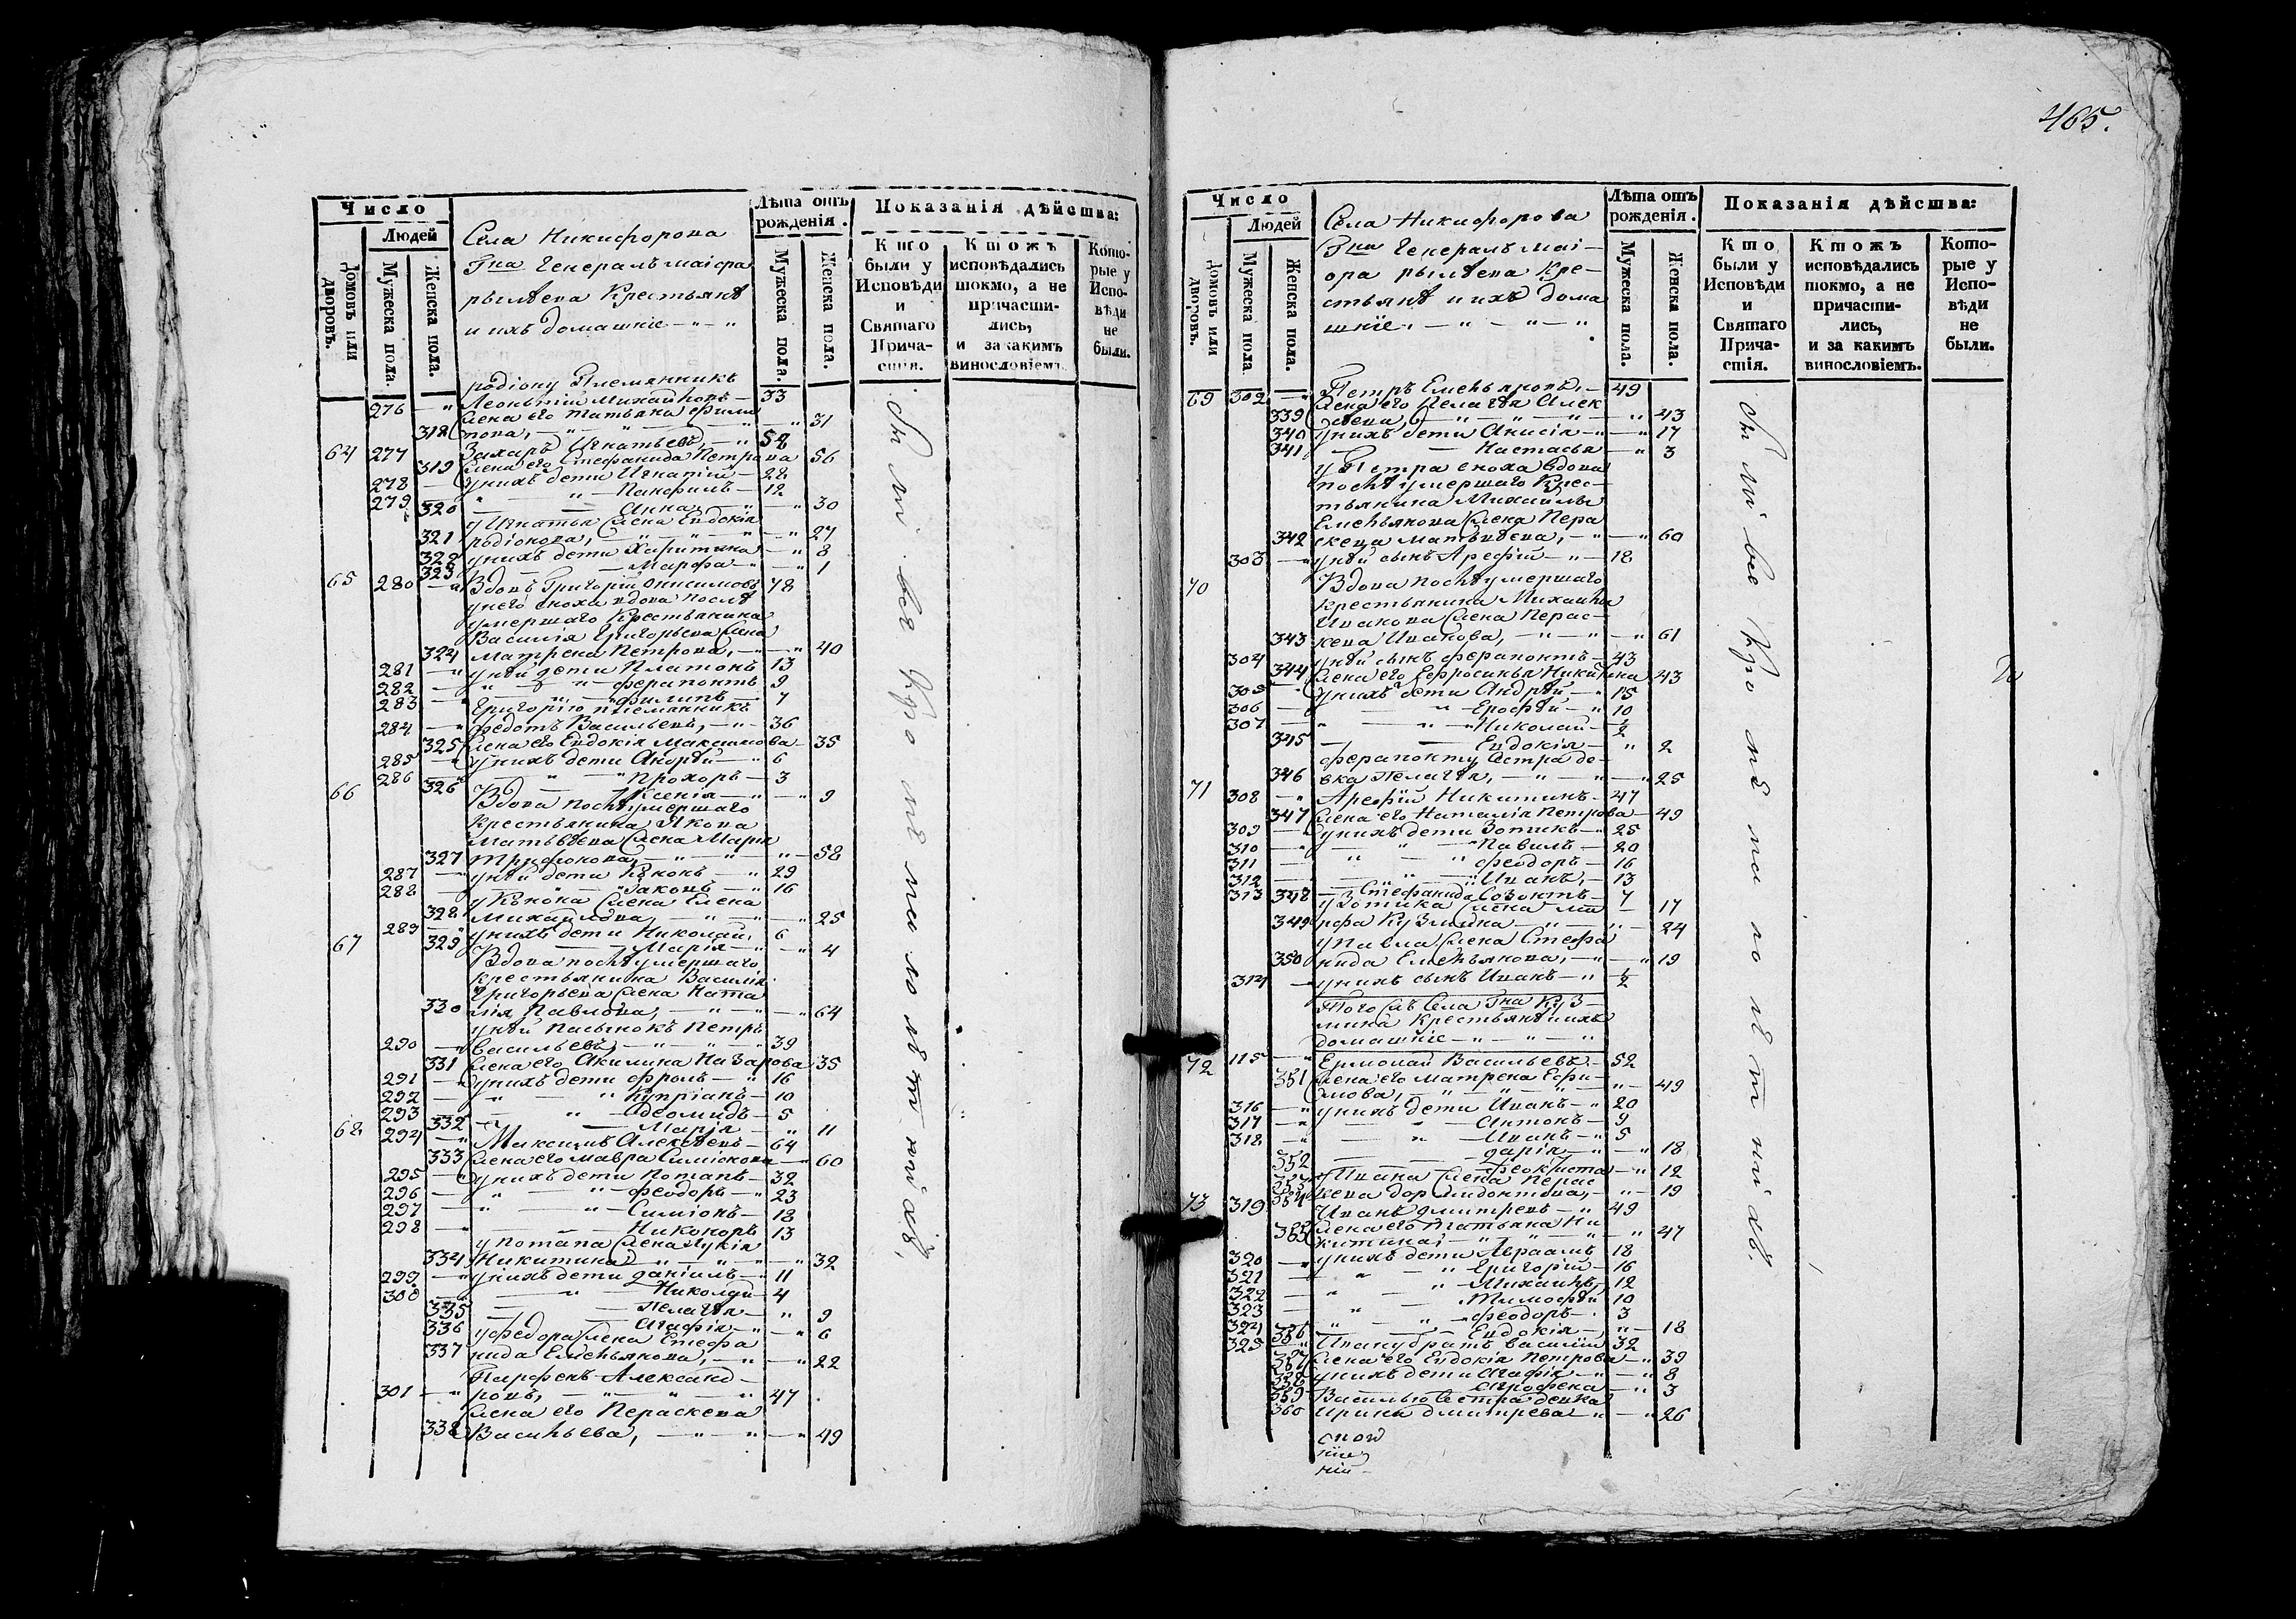 465.
Число
Людей
Домовъ или дворовъ.
Мужеска пола.
Женска пола.
Села Никифорова
Гна Генералъ маіора
рылѣева Крестьянѣ
и ихъ домашніе — " — "
Лѣта отъ рожденія.
Мужеска пола.
Женска пола.
Показанія дѣйства:
Кто были у Исповѣди и Святаго Причастія.
Ктожъ исповѣдались токмо, а не причастились, и за какимъ винословіемъ.
Которые у Исповѣди не были.
родіону Племянникъ
276 — " Леонътій Михайловъ — 33
жена его татьяна фили
318 пова, — " — " 31
64 277 Захаръ Игнатьевъ, — " 58
319 жена его Стефанида Петрова 56
278 — у нихъ дети Игнатій — 28
279 — " — " — Панфилъ — 12
320 — — Анна — " — " 30
у Игнатья жена Евдокія
321 родіонова, — " — " — " 27
322 у нихъ дети Харитина — " 8
323 — — Марфа — " — " 1
65 280 — " Вдовъ Григорій Онисимовъ 78
у него сноха вдова послѣ
умершаго Крестьянина
Василія Григорьева жена
324 Матрена Петрова, — " — " 40
281 — " у ней дети Платонъ 13
282 — " — " — ферапонтъ 9
283 — " — " филипъ — 7
Григорію племянникъ
284 — " федотъ Васильевъ, — " — 36
325 жена его Евдокія Максимова — 35
285 — " у нихъ дети Андрѣй — " 6
286 — " — " — Прохоръ — 3
326 — — Ксенія — " — " 9
66 Вдова послѣ умершаго
крестьянина Якова
Матьвѣева жена Марія
327 Труфонова, — " — " — " 58
287 — " у ней дети Кононъ — " 29
288 — " — " — 16
у Конона жена Елена
328 Михайлова, — " — " 25
289 — " у нихъ дети Николай 6
329 — — Марія — " — " 4
67 Вдова послѣ умершаго
крестьянина Василія
Григорьева жена Ната
330 лія Павлова, — " — " — " 64
у ней Пасынокъ Петръ
290 — " Васильевъ, — " — " — " 39
331 жена его Акилина Назарова 35
291 — " у нихъ дети фролъ — " 16
292 — " — " Купріанъ — 10
293 — " — 5
332 — — Марія — " 11
68 294 — " Максимъ Алексѣевъ — 64
333 жена его Мавра Симіонова — 60
295 — " у нихъ дети Потапъ — 32
296 — " — " — феодоръ — " 23
297 — " — " — Симіонъ — 18
298 — " — — Никоноръ 13
у Потапа жена Лукія
334 Никитина — " — " — " 32
299 — " у нихъ дети даніилъ — " 11
300 — " — Николай — 4
335 — — Пелагѣя — " 9
336 — — Агафія — " — " 6
у федора жена Стефа
337 нида Емельянова, — " — " 22
Парфенъ Александ-
301 — " ровъ, — " — " — " 47
жена его Пераскева
338 Васильева, — " — " — " 49
Число
Людей
Домовъ или дворовъ.
Мужеска пола
Женска пола.
Села Никифорова
Гна Генералъ маі-
ора рылѣева кре-
стьянѣ и ихъ дома
шніе. — " — " — "
Лѣта отъ рожденія.
Мужеска пола.
Женска пола.
Показанія дѣйства:
Кто были у Исповѣди и Святаго Причастія.
Ктожъ исповѣдались токмо, а не причастились, и за какимъ винословіемъ.
Которые у Исповѣди не были.
69 302 — " Петръ Емельяновъ, — 49
жена его Пелагѣя Алек
339 сѣева, — " — " — " 43
340 у нихъ дети Анисія — " — " 17
341 — — Настасья — " 3
у Петра сноха вдова
послѣ умершаго Крес-
тьянина Михайлы
Емельянова жена Пера
342 скева Матьвѣева, — " — " 60
303 — " у ней сынъ Арефій — " 18
70 Вдова послѣ умершаго
крестьянина Михайла
Иванова жена Перас-
343 кева Иванова, — " — " — " 61
304 у ней сынъ ферапонтъ — 43
344 жена его Ефросинья Никитина 43
305 — " у нихъ дети Андрѣй — " 15
306 — " — " Ерофѣй — " 10
307 — " — " Николай — 1/2
345 — — Евдокія — " 2
ферапонту сестра де-
346 вка Пелагѣя, — " — " — " 25
71 308 — " Арефій Никитинъ — 47
347 жена его Наталія Петрова — 49
309 — " у нихъ дети Зотикъ — " 25
310 — " — " — Павилъ — 20
311 — " — " феодоръ — 16
312 — " — " Иванъ, — 13
313 348 — 7
у Зотика жена Ма 17
349 рфа Кузмина — " — " 24
у Павла жена Стефа
350 нида Емельянова, — " — " 19
314 — у нихъ сынъ Иванъ — " 1/2
Того жъ Села Гна Куз-
мина крестьянѣ и ихъ
домашніе — " — " — "
72 115 — " Ермолай Васильевъ — 52
351 жена его Матрена Ефи-
мова, — " — " — " 49
316 — " у нихъ дети Иванъ — " 20
317 — " — " — Антонъ — 9
318 — " — " — Иванъ — " 5
352 — — дарія — " — " 18
353 — — феоктиста — " 12
у Ивана жена Перас
354 кева дормидонтова, — " — 19
73 319 Иванъ дмитревъ — " 49
355 жена его Татьяна Ни
китина, — " — " — " 47
320 — " у нихъ дети Авраамъ 18
321 — " — " Григорій — 16
322 — " — " Михаилъ, 12
323 — " — " Тимофѣй 10
324 — " — " феодоръ — 3
356 — — Евдокія — " 18
325 — " Ивану братъ василій 32
357 жена его Евдокія Петрова — " 39
358 у нихъ дети Агафія — " — " 8
359 — " 3
Василью сестра девка
360 Ирина дмитрева — " — " 26